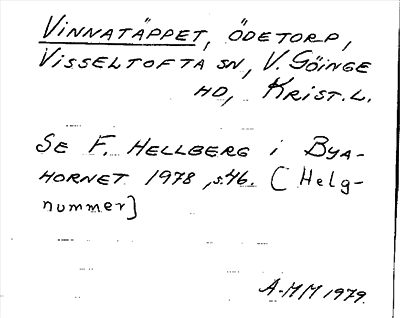 VINNATÄPPET, ÖDETORP,
VISSELTOFTA SN, V. GÖINGE
HD, KRIST.L.
SE F. HELLBERG i BYA-
HORNET 1978, s.46. [Helg-
nummer]
A-MM 1979.